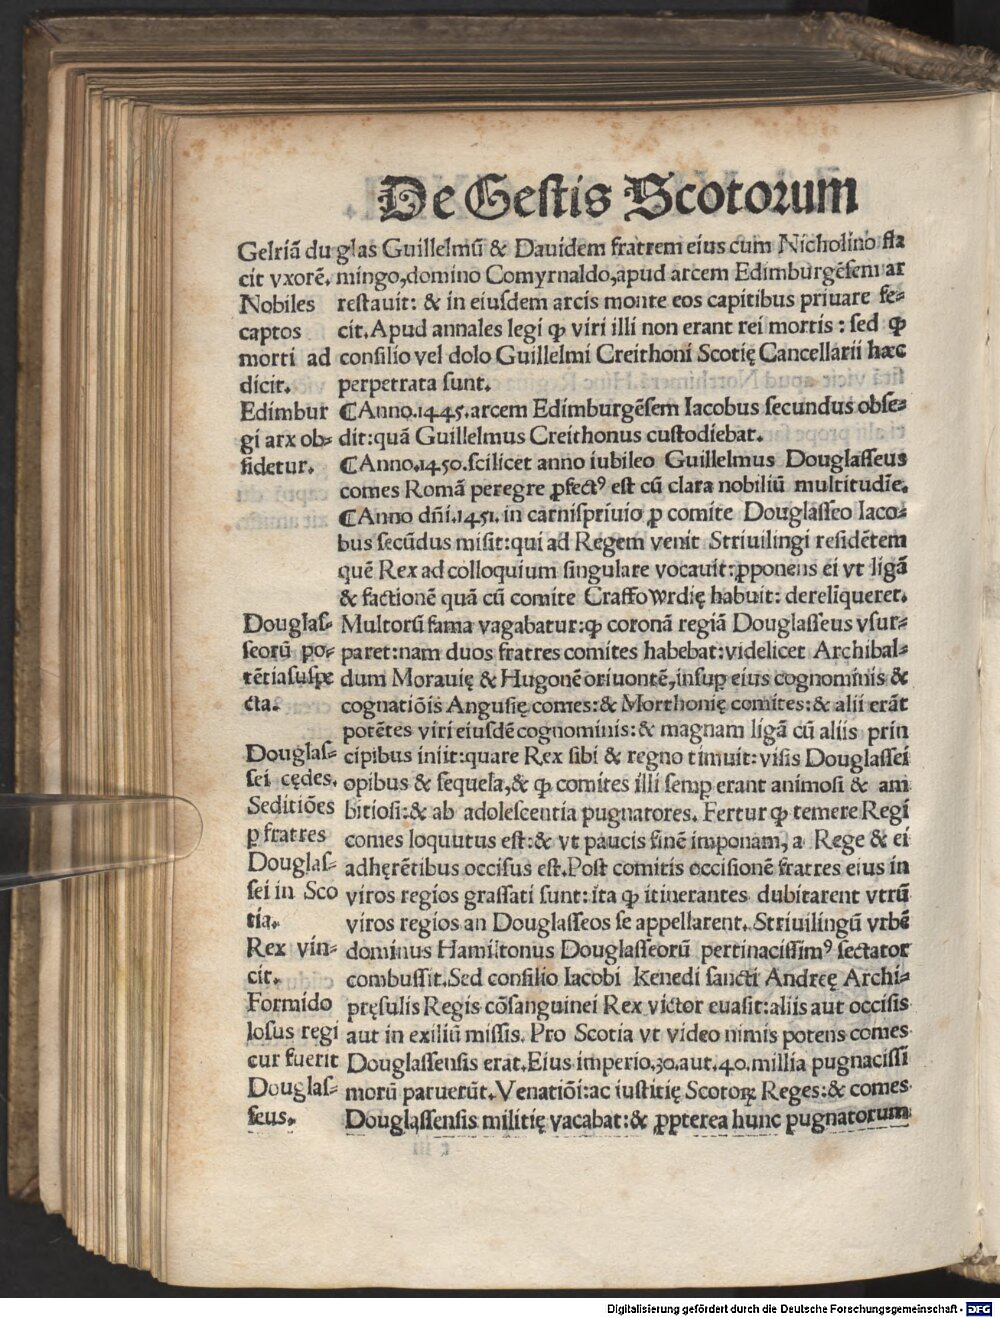 De Gestis Scotorum
Gelriã du
cit vxorẽ.
Nobiles
captos
morti ad
dicit.
Edimbur
gi arx ob=
sidetur.
Douglas=
seorũ po=
tẽtia suspe
cta.
Douglas=
sei cędes.
Seditiões
ꝑ fratres
Douglas=
sei in Sco
tia.
Rex vin=
cit.
Formido
losus regi
cur fuerit
Douglas=
seus.
glas Guillelmũ & Dauidem fratrem eius cum Nicholino fla
mingo, domino Comyrnaldo, apud arcem Edimburgẽsem ar
restauit: & in eiusdem arcis monte eos capitibus priuare fe=
cit. Apud annales legi ꝙ viri illi non erant rei mortis: sed ꝙ
consilio vel dolo Guillelmi Creithoni Scotię Cancellarii hæc
perpetrata sunt.
¶Anno.1445.arcem Edimburgẽsem Iacobus secundus obse=
dit:quã Guillelmus Creithonus custodiebat.
¶Anno.1450.scilicet anno iubileo Guillelmus Douglasseus
comes Romã peregre ꝓfectꝰ est cũ clara nobiliũ multitudĩe.
¶Anno dñi.1451. in carnispriuio ꝓ comite Douglasseo Iaco=
bus secũdus misit:qui ad Regem venit Striuilingi residẽtem
quẽ Rex ad colloquium singulare vocauit:ꝓponens ei vt ligã
& factionẽ quã cũ comite Craffowrdię habuit: derelĩqueret.
Multorũ fama vagabatur:ꝙ coronã regiã Douglasseus vsur=
paret:nam duos fratres comites habebat:videlicet Archibal=
dum Morauię & Hugonẽ oriuontẽ,insuꝑ eius cognominis &
cognatiõis Angusię comes:& Morthonię comites:& alii erãt
potẽtes viri eiusdẽ cognominis:& magnam ligã cũ aliis prin
cipibus iniit:quare Rex sibi & regno timuit:visis Douglassei
opibus & sequela,& ꝙ comites illi semꝑ erant animosi & am
bitiosi:& ab adolescentia pugnatores. Fertur ꝙ temere Regi
comes loquutus est:& vt paucis finẽ imponam, a Rege & ei
adhęrẽtibus occisus est.Post comitis occisionẽ fratres eius in
viros regios grassati sunt:ita ꝙ itinerantes dubitarent vtrũ
viros regios an Douglasseos se appellarent. Striuilingũ vrbẽ
dominus Hamiltonus Douglasseorũ pertinacissimꝰ sectator
combussit.Sed consilio Iacobi Kenedi sancti Andreę Archi=
pręsulis Regis cõsanguinei Rex victor euasit:aliis aut occisis
aut in exiliũ missis. Pro Scotia vt video nimis potens comes
Douglassensis erat.Eius imperio.30.aut.40.millia pugnacissi
morũ paruerũt.Venatiõi:ac iustitię Scotoꝝ Reges:& comes
Douglassensis militię vacabat:& ꝓpterea hunc pugnatorum
Digitalisierung gefördert durch die Deutsche Forschungsgemeinschaft - DFG